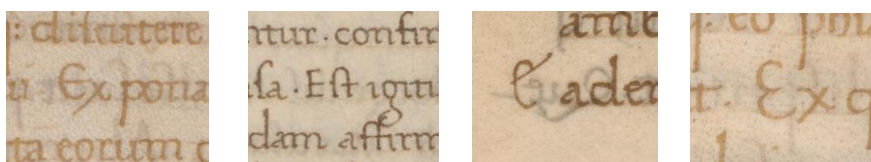 discutere
ui Ex pona
ta eorum c
ntur. confir
sa. Est igitu
dam affirm
amb
& ader
eo phi
t. Ex q